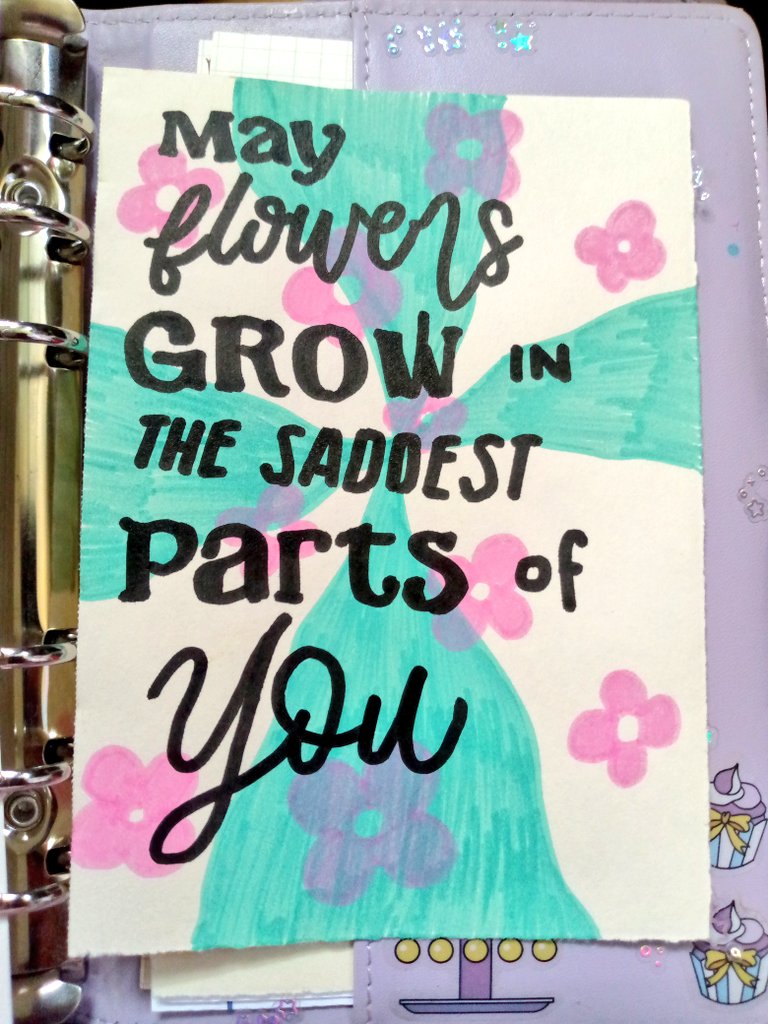 May
flowers
GROW IN
THE SADDEST
Parts of
You